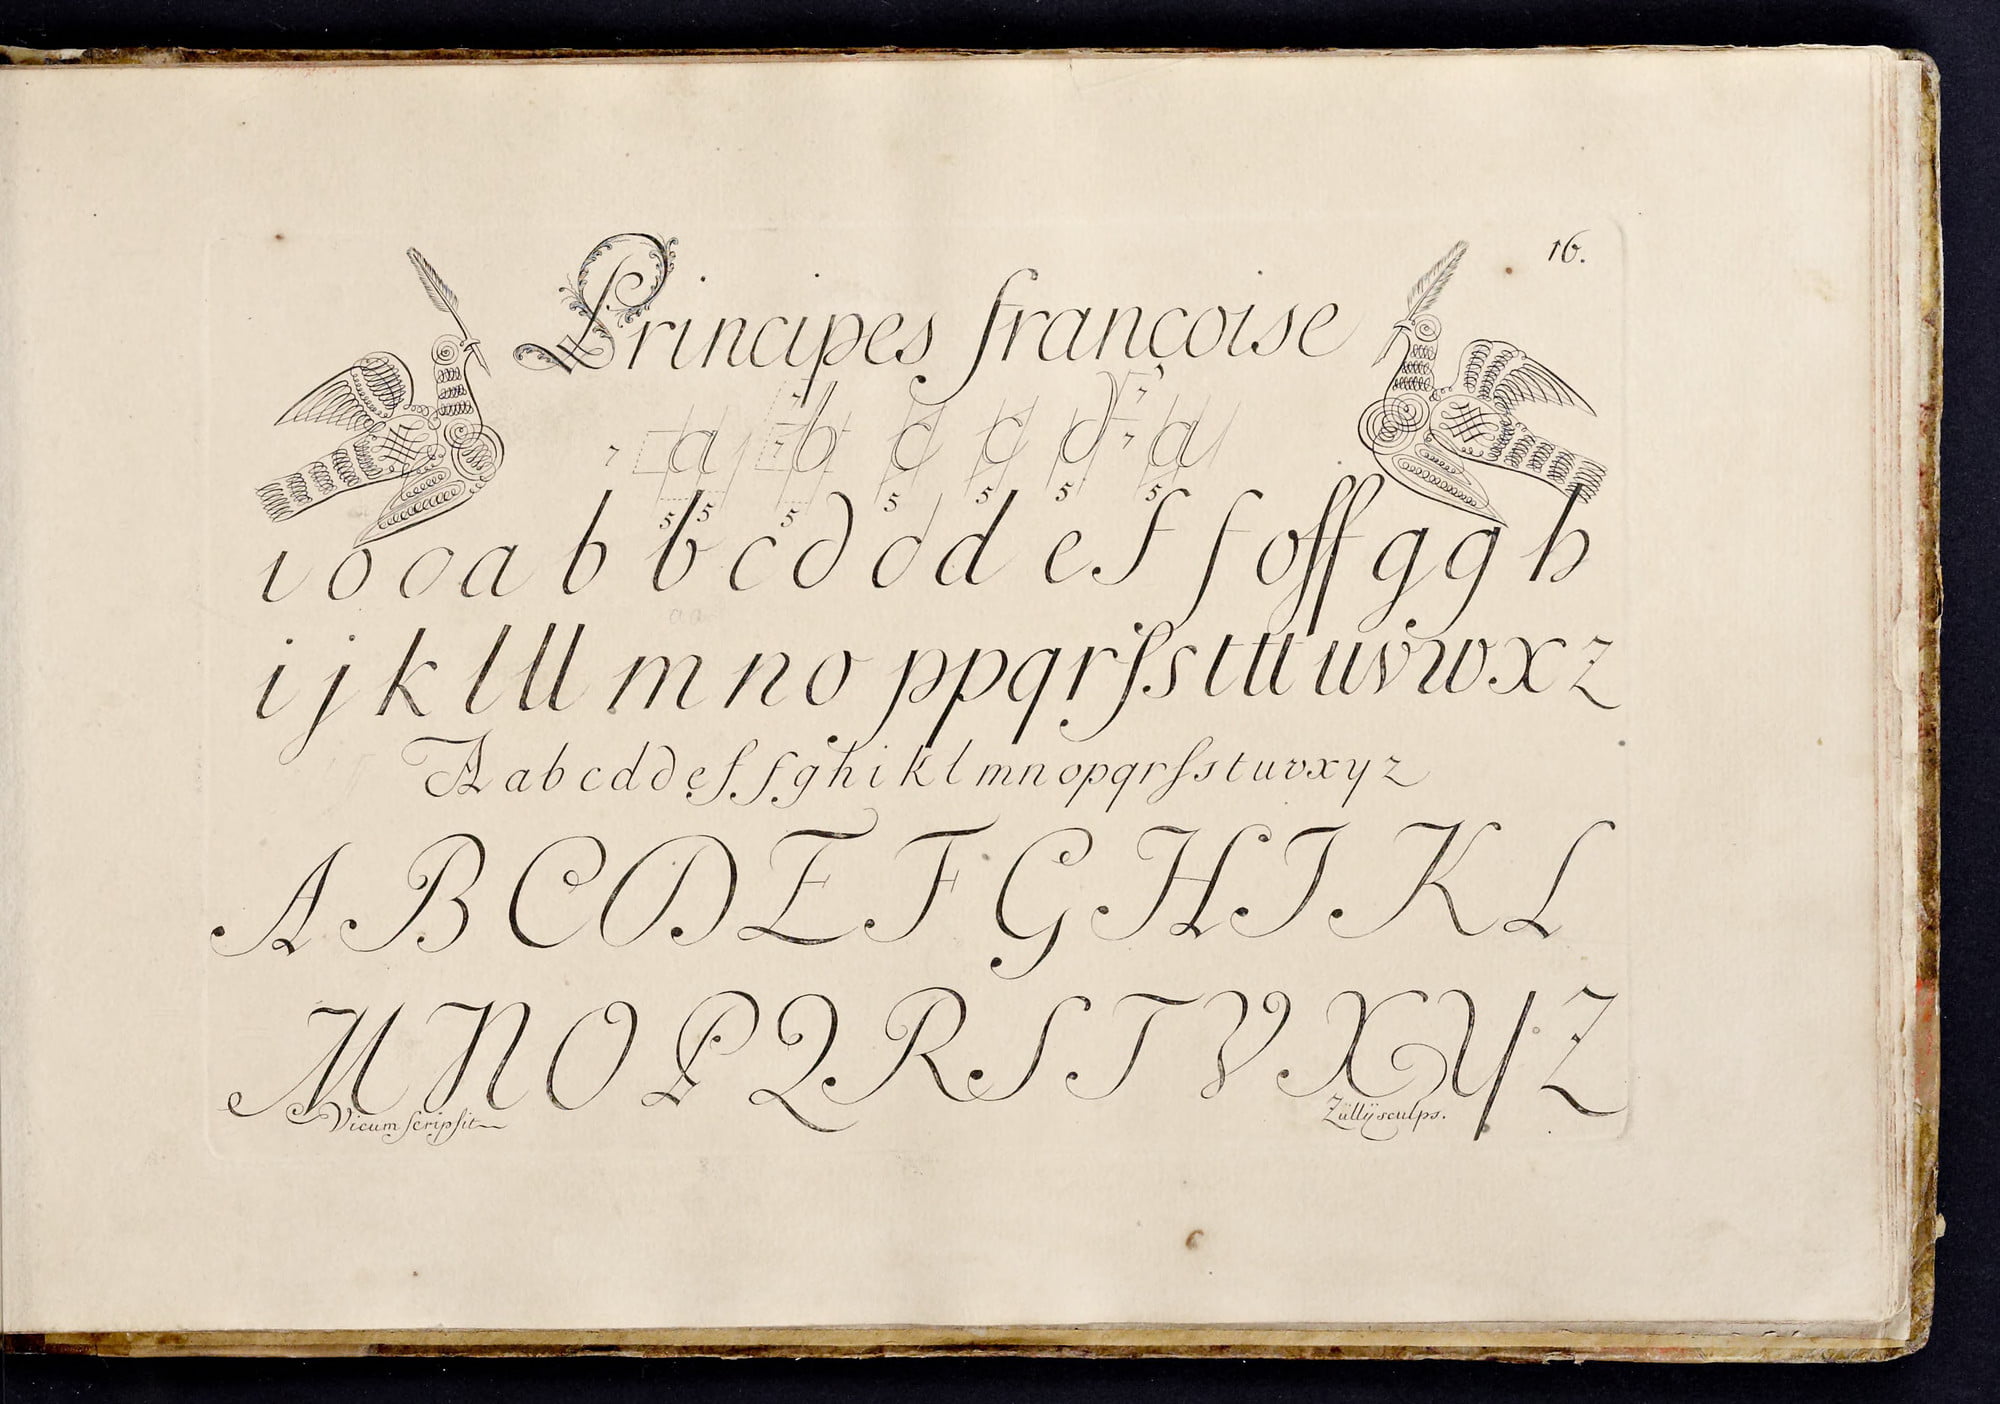 16.
Principes françoise
7 a 7 7 b c c d 7 7 a
5 5 5 5 5 5 5
ı o o a b b c d d d e f ſ off g g h
i j k l ll m n o p p q r ſs s t tt u v w x z
A a b c d d e f ſ g h i k l m n o p q r ſ s t u v x y z
A B C D E F G H I K L
M N O P Q R S T V X Y Z
Vicum ſcripſit
Züllÿ sculps.